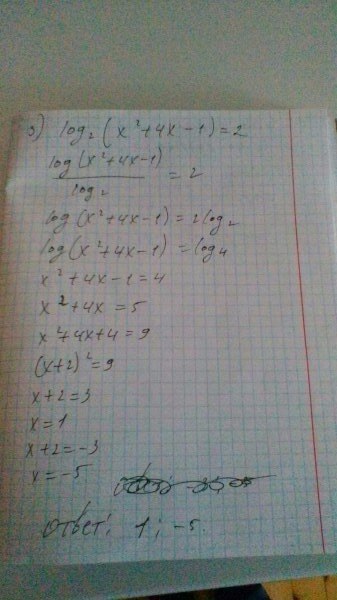 3) log₂(x²+4x-1)=2
log(x²+4x-1)/log₂ = 2
log(x²+4x-1)=2log₂
log(x²+4x-1)=log₄
x²+4x-1=4
x²+4x=5
x²+4x+4=9
(x+2)²=9
x+2=3
x=1
x+2=-3
x=-5
Ответ: 1; -5.